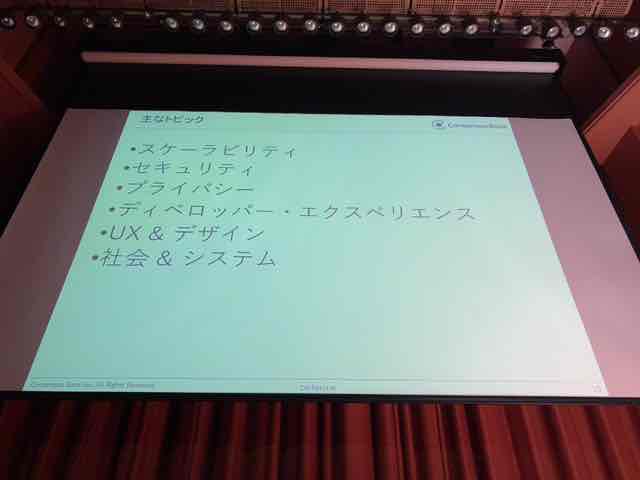 主なトピック
ConsensusBase
•スケーラビリティ
•セキュリティ
•プライバシー
•ディベロッパー・エクスペリエンス
•UX & デザイン
•社会 & システム
Consensus Base Inc. All Rights Reserved.